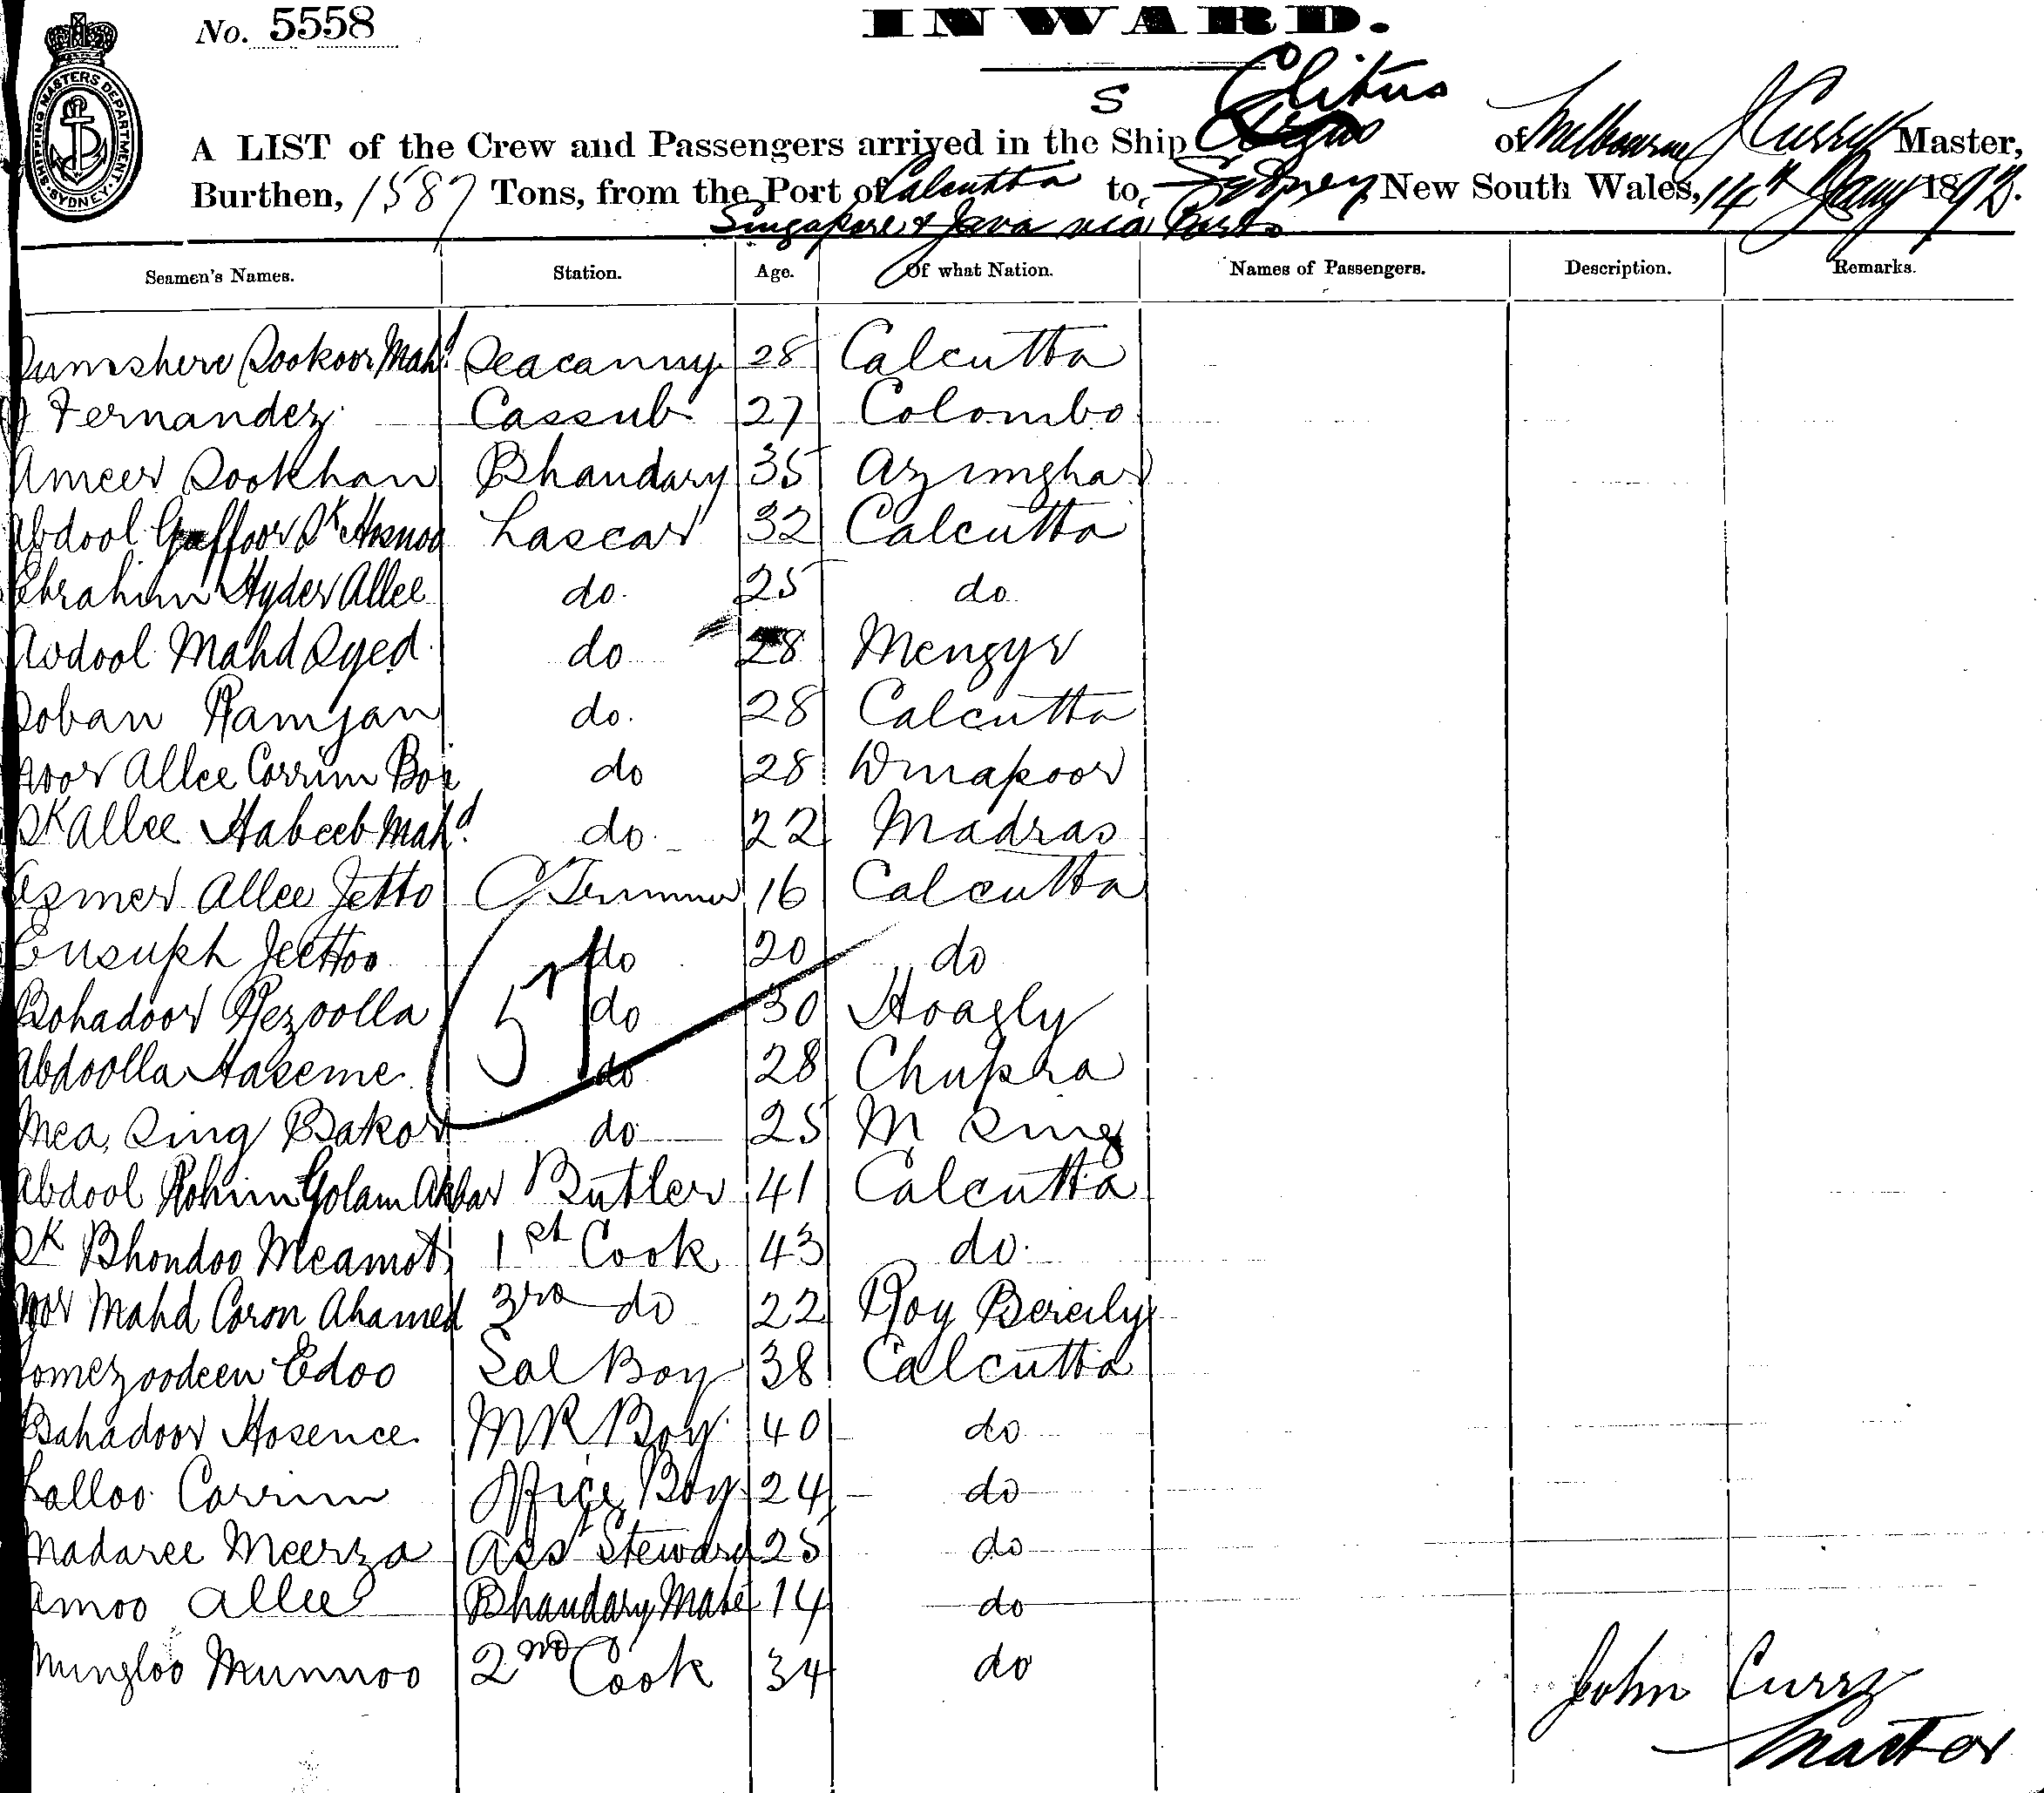 No. 5558
INWARD.
SHIPPING MASTERS DEPARTMENT SYDNEY
S Clitus
A LIST of the Crew and Passengers arrived in the Ship of Melbourne J Curry Master,
Burthen, 1587 Tons, from the Port of Calcutta to Sydney New South Wales, 14th Jany 1892.
Singapore & Java via Ports
Seamen's Names. Station. Age. Of what Nation. Names of Passengers. Description. Remarks.
Sookoor Mahd. Seacanny 28 Calcutta
Fernandez Cassub 27 Colombo
Ameer Sookhan Bhandary 35 Azimghar
Abdool Gaffoor Sk Lascar 32 Calcutta
Ebrahim Hyder Allee do. 25 do
Abdool Mahd Syed do 28 Mengyr
Soban Ramjan do. 28 Calcutta
Noor Allee Corrim do 28 Dinapoor
Sk Allee Habeeb Mahd. do. 22 Madras
Allee Jetto C Trimmer 16 Calcutta
Eusuph Jeettoo do 20 do
Bohadoor Rezoolla do 30 Hoagly
57
Abdoolla Haseme do 28 Chupra
Mea Sing Bakor do 25 M Sing
Abdool Rohim Golam Akbar Butler 41 Calcutta
Sk Bhondoo 1st Cook 43 do.
Mahd Coron Ahamed 3rd do 22 Roy Bereily
Edoo Sal Boy 38 Calcutta
Bahadoor Hosence MR Boy 40 do
Lalloo Corrim Office Boy 24 do
Madaree Meerza Ass Steward 25 do
Amoo Allee Bhandary Mate 14 do
Mungloo Munnoo 2nd Cook 34 do
John Curry
Master